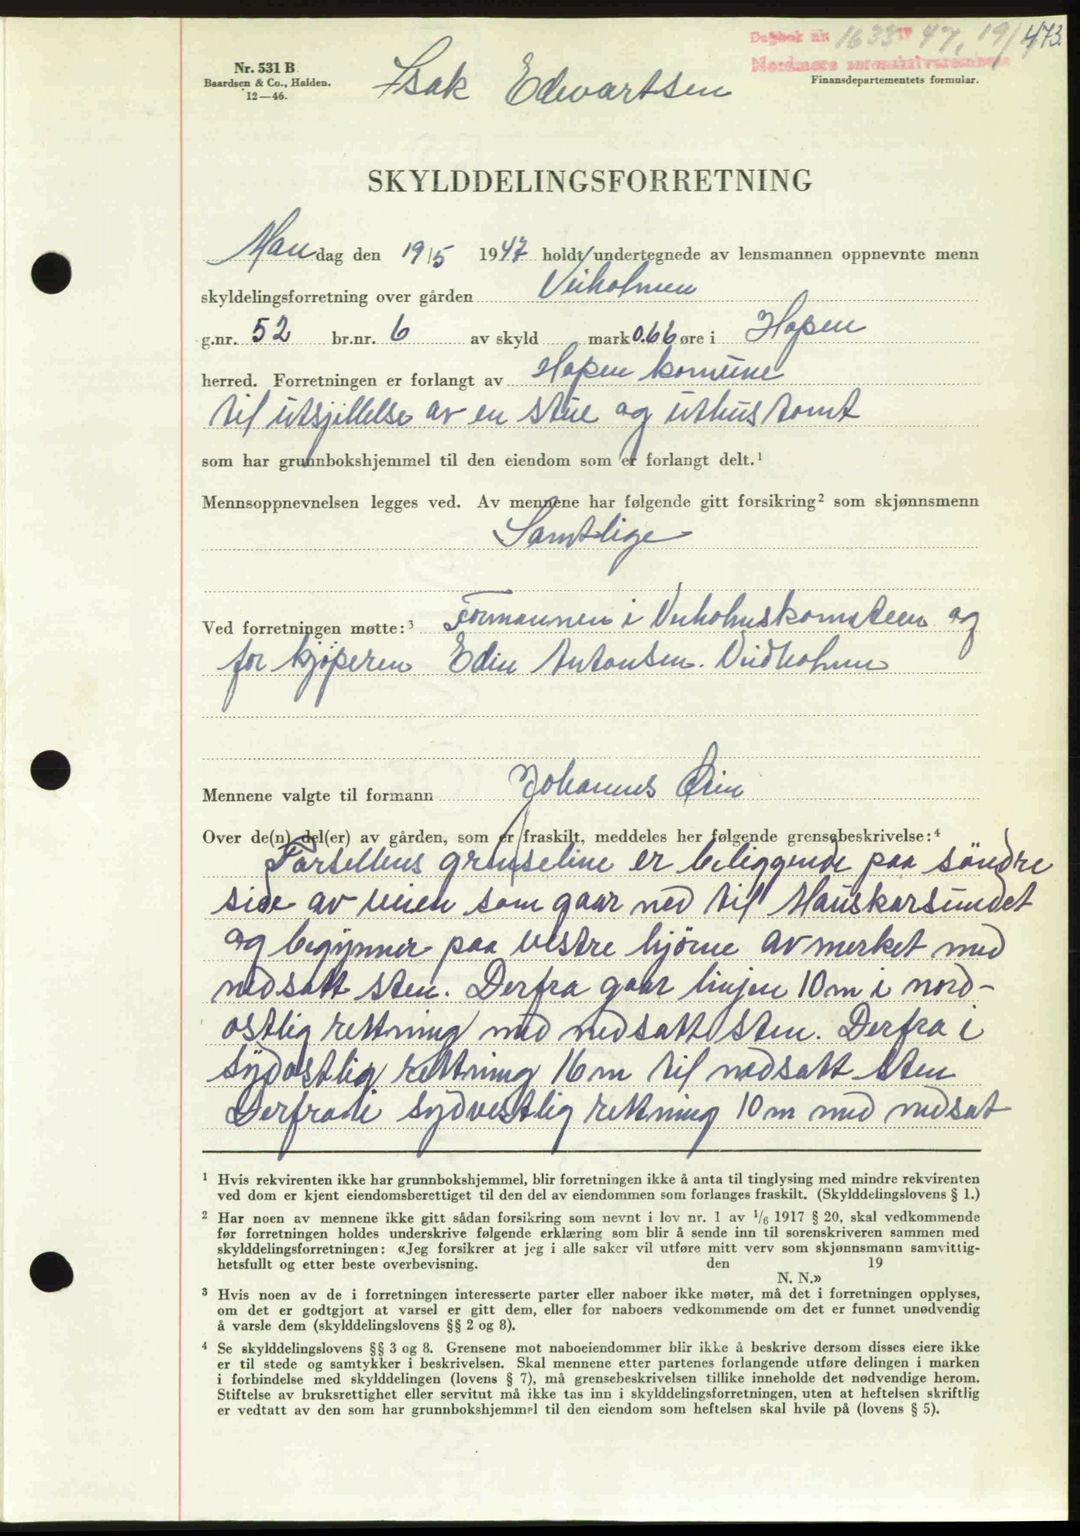 Dagbok nr. 1633 19 47, 19/ 473.
Nordmøre sorenskriverembete
Nr. 531 B
Baardsen & Co., Halden.
12—46.
Isak Edvartsen
Finansdepartementets formular.
SKYLDDELINGSFORRETNING
Mandag den 19/5 1947 holdt undertegnede av lensmannen oppnevnte menn
skyldelingsforretning over gården Veiholmen
g.nr. 52 br.nr. 6 av skyld mark 0.66 øre i Hopen
herred. Forretningen er forlangt av Hopen komune
til utsjillelse av en stue og uthustomt
som har grunnbokshjemmel til den eiendom som er forlangt delt.¹
Mennsoppnevnelsen legges ved. Av mennene har følgende gitt forsikring² som skjønnsmenn
Samtlige
Ved forretningen møtte:³ Formannen i og
for kjøperen Edin Antonsen. Veidholmen
Mennene valgte til formann Johannes
Over de(n) del(er) av gården, som er fraskilt, meddeles her følgende grensebeskrivelse:⁴
Parsellens grenseline er beliggende paa søndre
side av veien som gaar ned til Hauskarsundet
og begynner paa vestre hjørne avmerket med
nedsatt sten. Derfra gaar linjen 10 m i nord-
ostlig rettning med nedsatt sten. Derfra i
sydostlig rettning 16 m til nedsatt sten
Derfra i sydvestlig rettning 10 m med nedsat
¹ Hvis rekvirenten ikke har grunnbokshjemmel, blir forretningen ikke å anta til tinglysing med mindre rekvirenten
ved dom er kjent eiendomsberettiget til den del av eiendommen som forlanges fraskilt. (Skylddelingslovens § 1.)
² Har noen av mennene ikke gitt sådan forsikring som nevnt i lov nr. 1 av 1/6 1917 § 20, skal vedkommende
før forretningen holdes underskrive følgende erklæring som blir å sende inn til sorenskriveren sammen med
skylddelingsforretningen: «Jeg forsikrer at jeg i alle saker vil utføre mitt verv som skjønnsmann samvittig-
hetsfullt og etter beste overbevisning. den 19
N. N.»
³ Hvis noen av de i forretningen interesserte parter eller naboer ikke møter, må det i forretningen opplyses,
om det er godtgjort at varsel er gitt dem, eller for naboers vedkommende om det er funnet unødvendig
å varsle dem (skylddelingslovens §§ 2 og 8).
⁴ Se skylddelingslovens §§ 3 og 8. Grensene mot naboeiendommer blir ikke å beskrive dersom disses eiere ikke
er til stede og samtykker i beskrivelsen. Skal mennene etter partenes forlangende utføre delingen i marken
i forbindelse med skylddelingen (lovens § 7), må grensebeskrivelsen tillike inneholde det nødvendige herom.
Stiftelse av bruksrettighet eller servitut må ikke tas inn i skylddelingsforretningen, uten at heftelsen skriftlig
er vedtatt av den som har grunnbokshjemmel til den eiendom som heftelsen skal hvile på (lovens § 5).